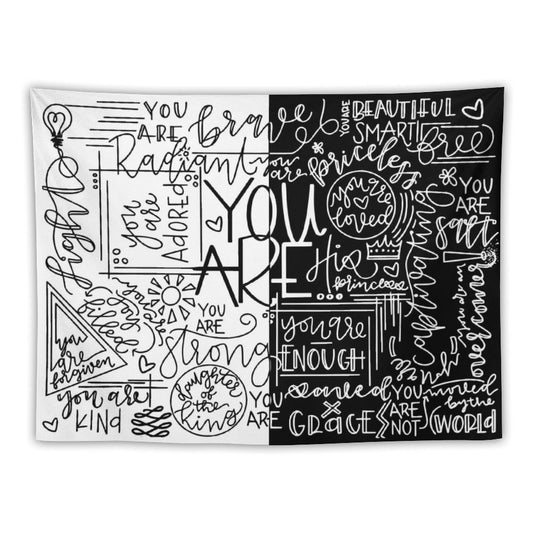 YOU
ARE
brave
YOU ARE
BEAUTIFUL
SMART
free
Radiant
you are
priceless
light
you
are
ADORED
YOU
ARE
you are
loved
YOU
ARE
salt
His
princess
captivating
you are an
overcomer
you
are
forgiven
YOU
ARE
strong
you are
ENOUGH
you are
KIND
daughter
of the
king
YOU
ARE
saved
x
GRACE
YOU
ARE
NOT
moved
by the
WORLD